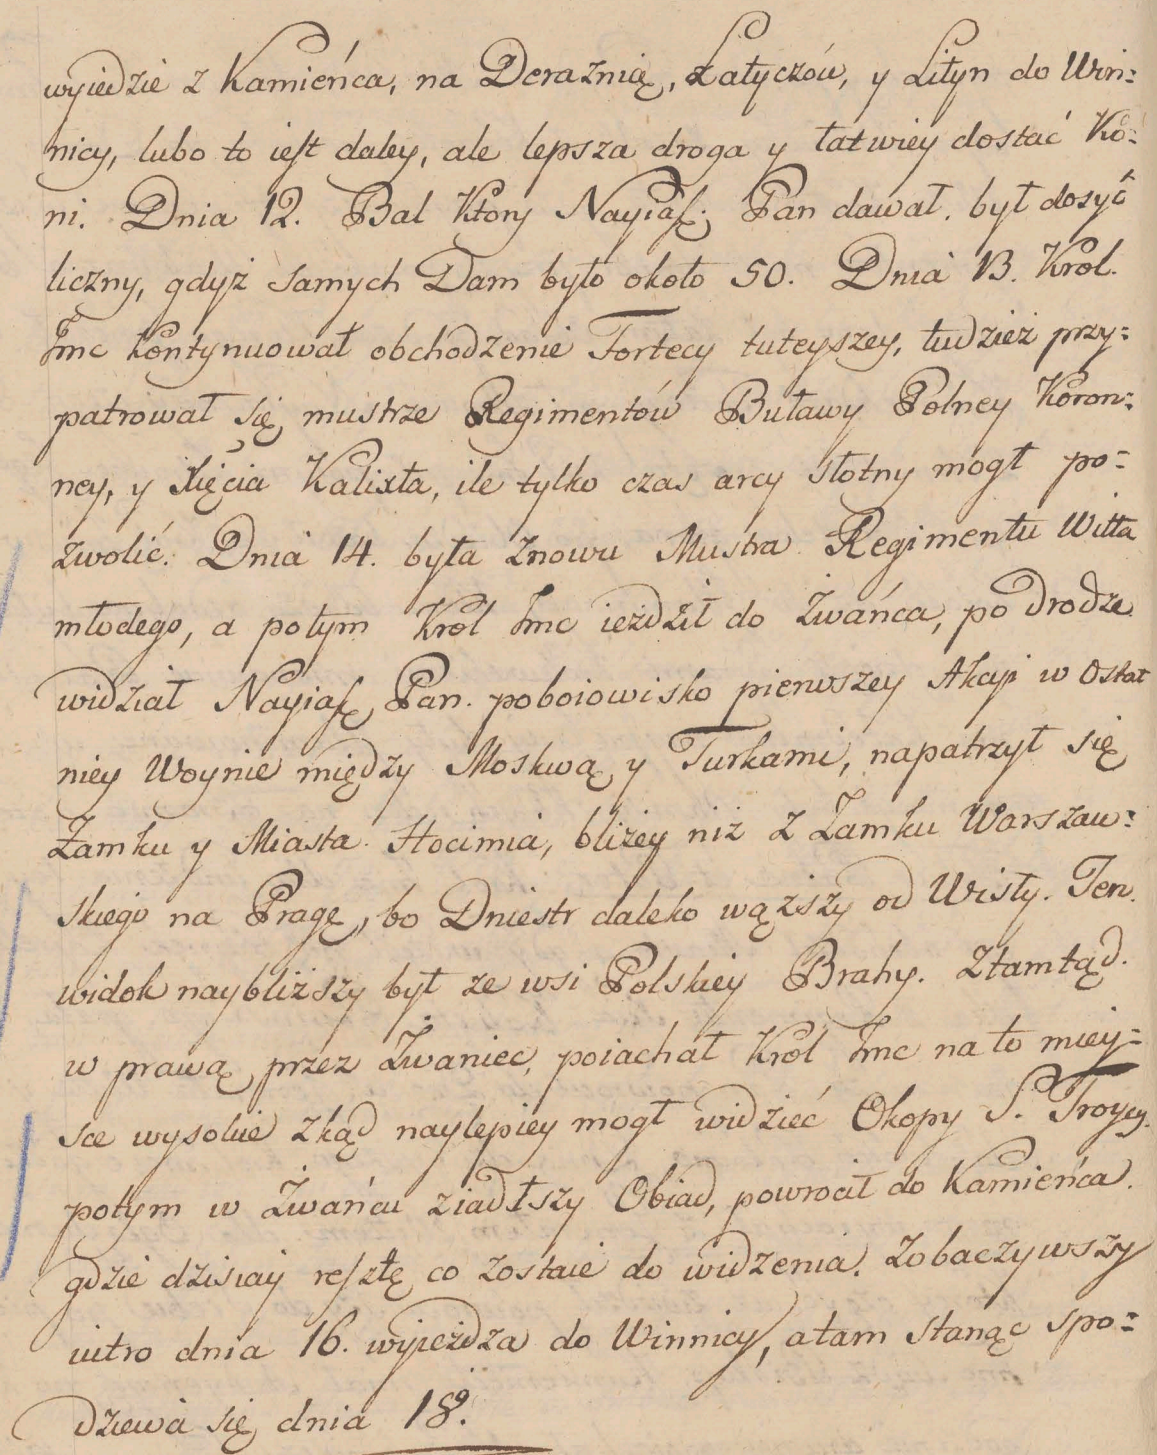 wyiedzie z Kamieńca, na Deraznią, Latyczów, y Lityn do Win:
nicy, lubo to iest daley, ale lepsza droga y łatwiey dostać Ko:
ni. Dnia 12. Bal Ktory Nayiaś. Pan dawał. był dosyć
liczny, gdyż samych Dam było około 50. Dnia 13. Krol.
Jmc kontynuował obchodzenie Fortecy tuteyszey, tudzież przy:
patrował się mustrze Regimentów Buławy Polney Koron:
ney, y Xięcia Kalixta, ile tylko czas arcy słotny mogł po:
zwolić. Dnia 14. była znowu Mustra Regimentu Witta
młodego, a potym Krol Jmc ieździł do Żwańca, po drodze
widział Nayiaś. Pan. poboiowisko pierwszey Akcyi w Ostat
niey Woynie między Moskwą y Turkami, napatrzył się
Zamku y Miasta Hocimia, bliżey niż z Zamku Warszaw:
skiego na Pragę, bo Dniestr daleko wązszy od Wisły. Ten.
widok naybliższy był ze wsi Polskiey Brahy. Ztamtąd.
w prawą przez Żwaniec, poiachał Krol Jmc na to miey:
sce wysokie zkąd naylepiey mogł widzieć Okopy S. Troycy.
potym w Żwańcu ziadłszy Obiad, powrocił do Kamieńca.
gdzie dzisiay resztę co zostaie do widzenia. Zobaczywszy
iutro dnia 16. wyieżdza do Winnicy, a tam stanąć spo:
dziewa się dnia 18º.